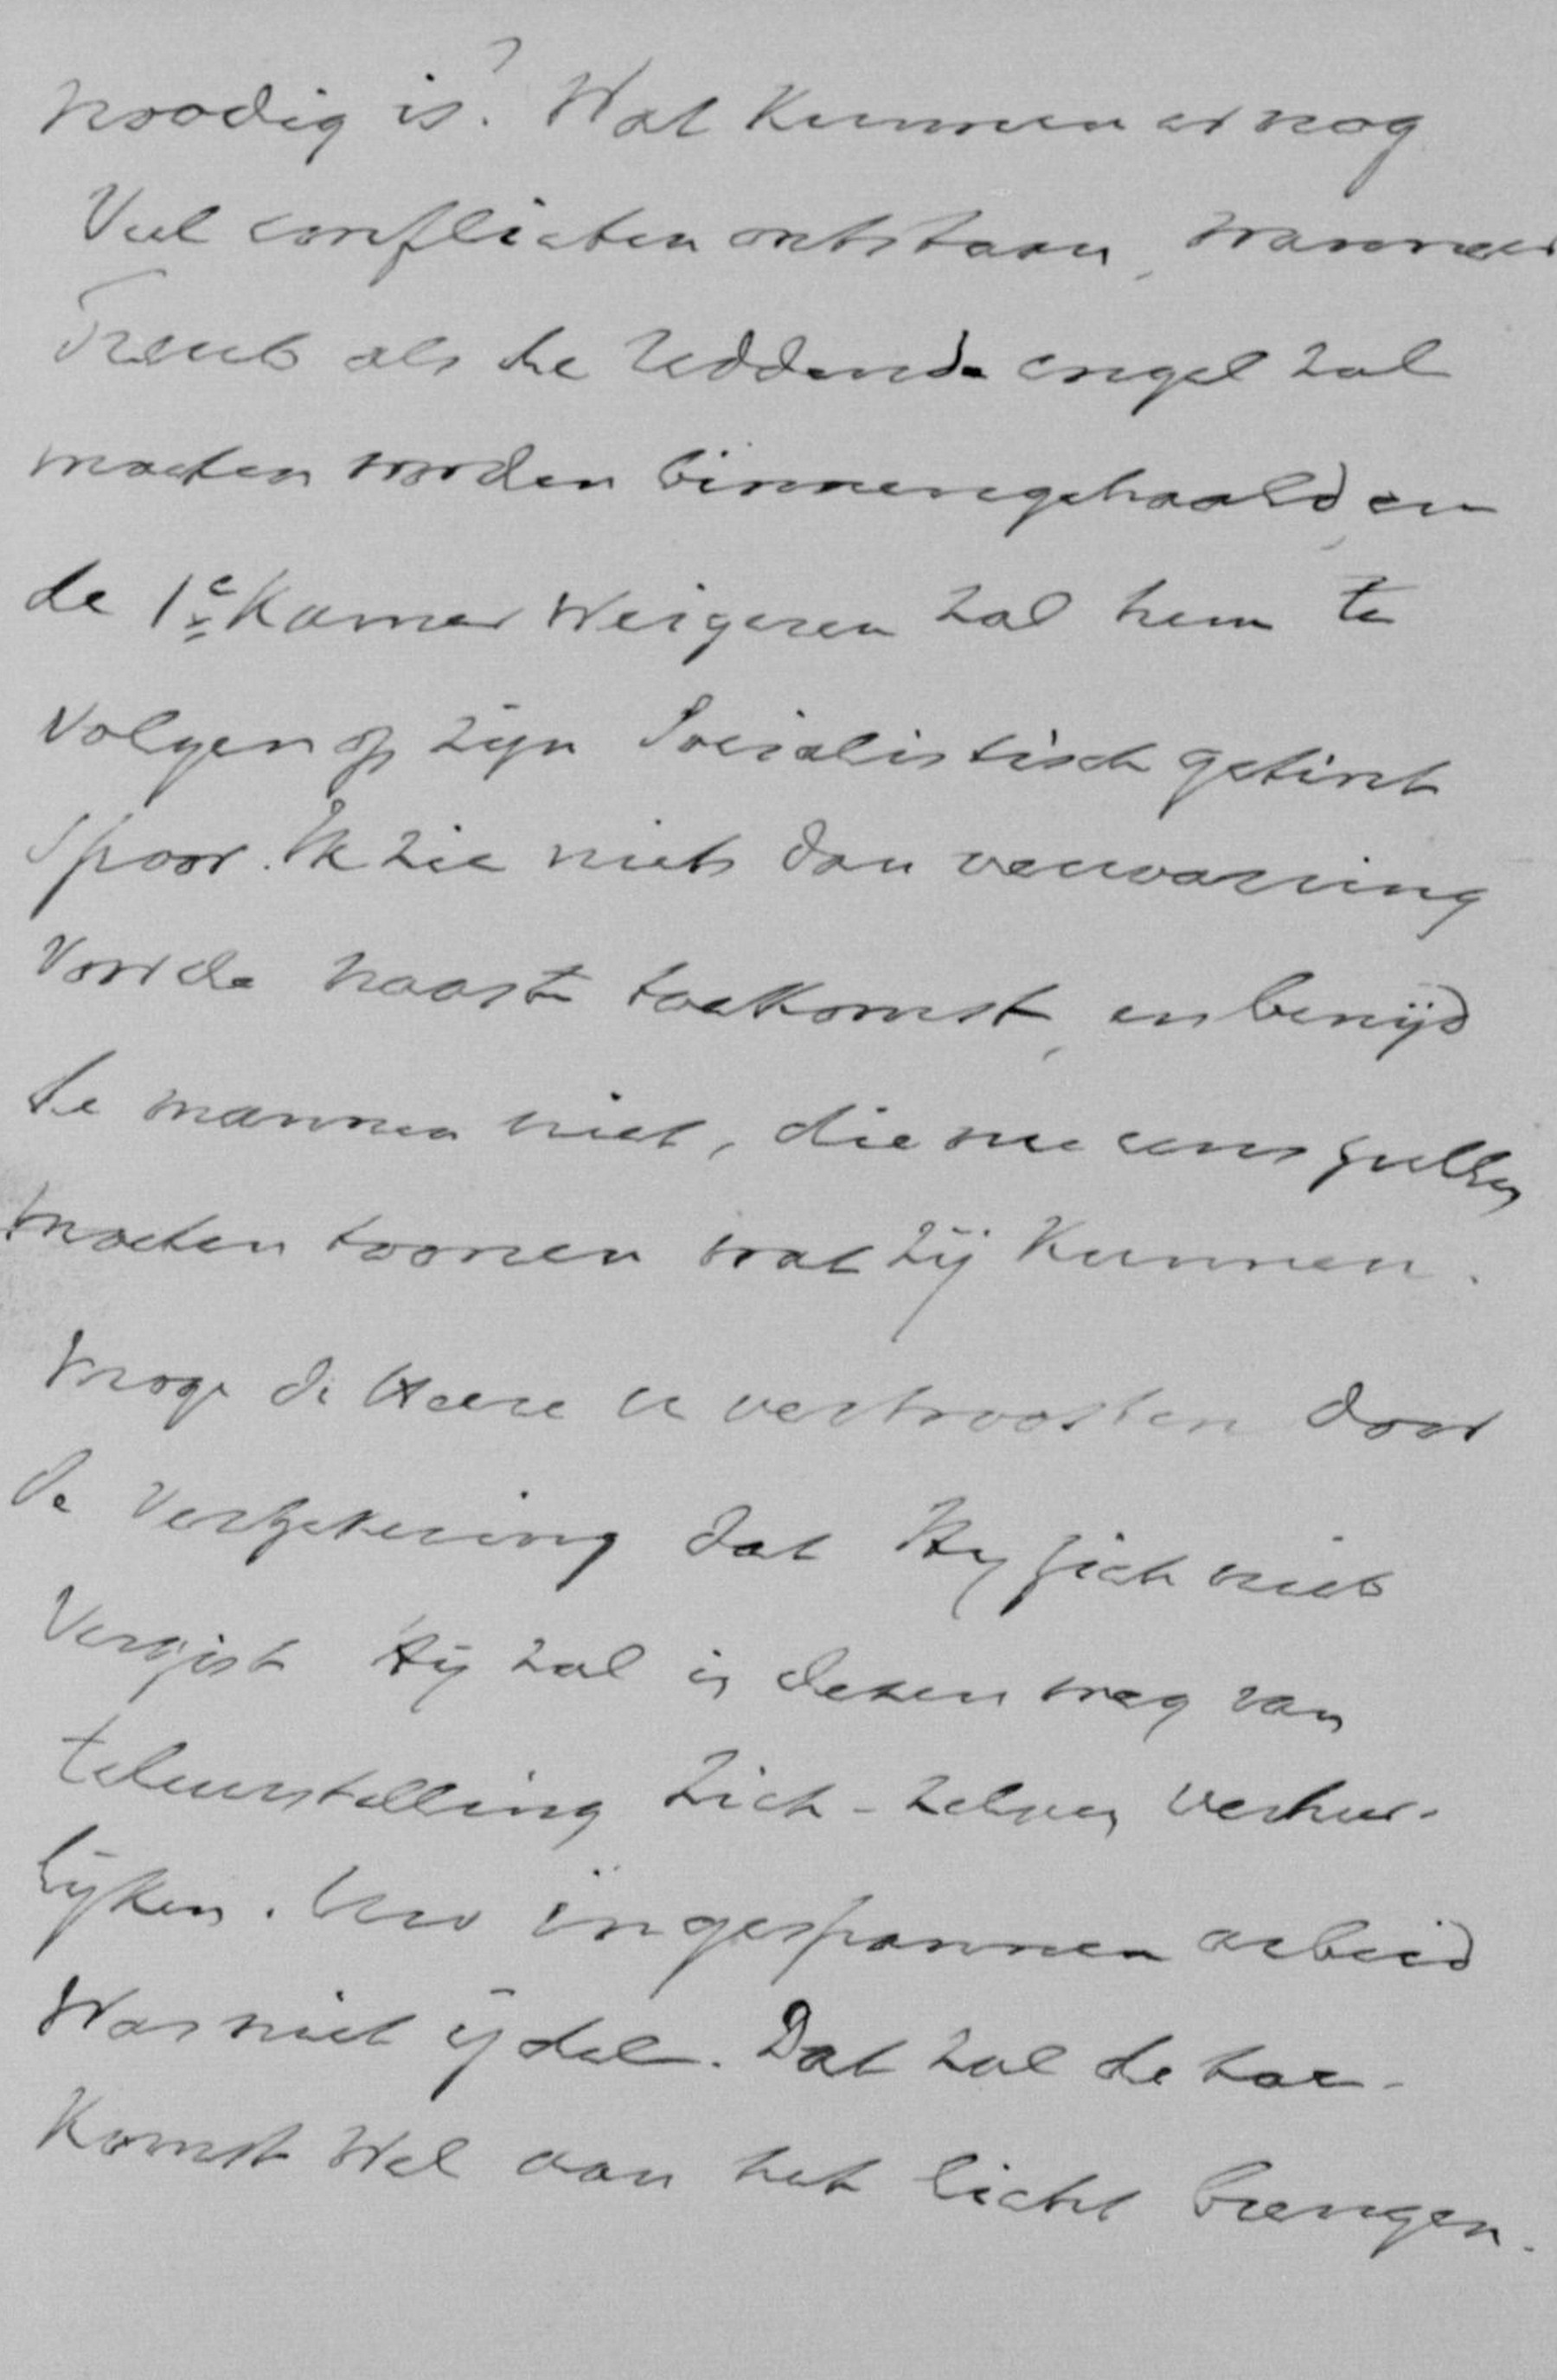 noodig is? Wat kunnen er nog
Veel conflicten ontstaan, wanneer
Treub als de reddende engel zal
moeten worden binnengehaald, en
de 1e Kamer weigeren zal hem te
volgen op zijn Socialistisch getint
spoor. Ik zie niets dan verwarring
voor de naaste toekomst, en benijd
de mannen niet, die nu eens zullen
moeten toonen wat zij kunnen.
Moge de Heere U vertroosten door
de verzekering dat Hij zich niet
vergist Hij zal in dezen weg van
teleurstelling zich-zelven verheer-
lijken. Uw ingespannen arbeid
Was niet ijdel. Dat zal de toe-
komst wel aan het licht brengen.